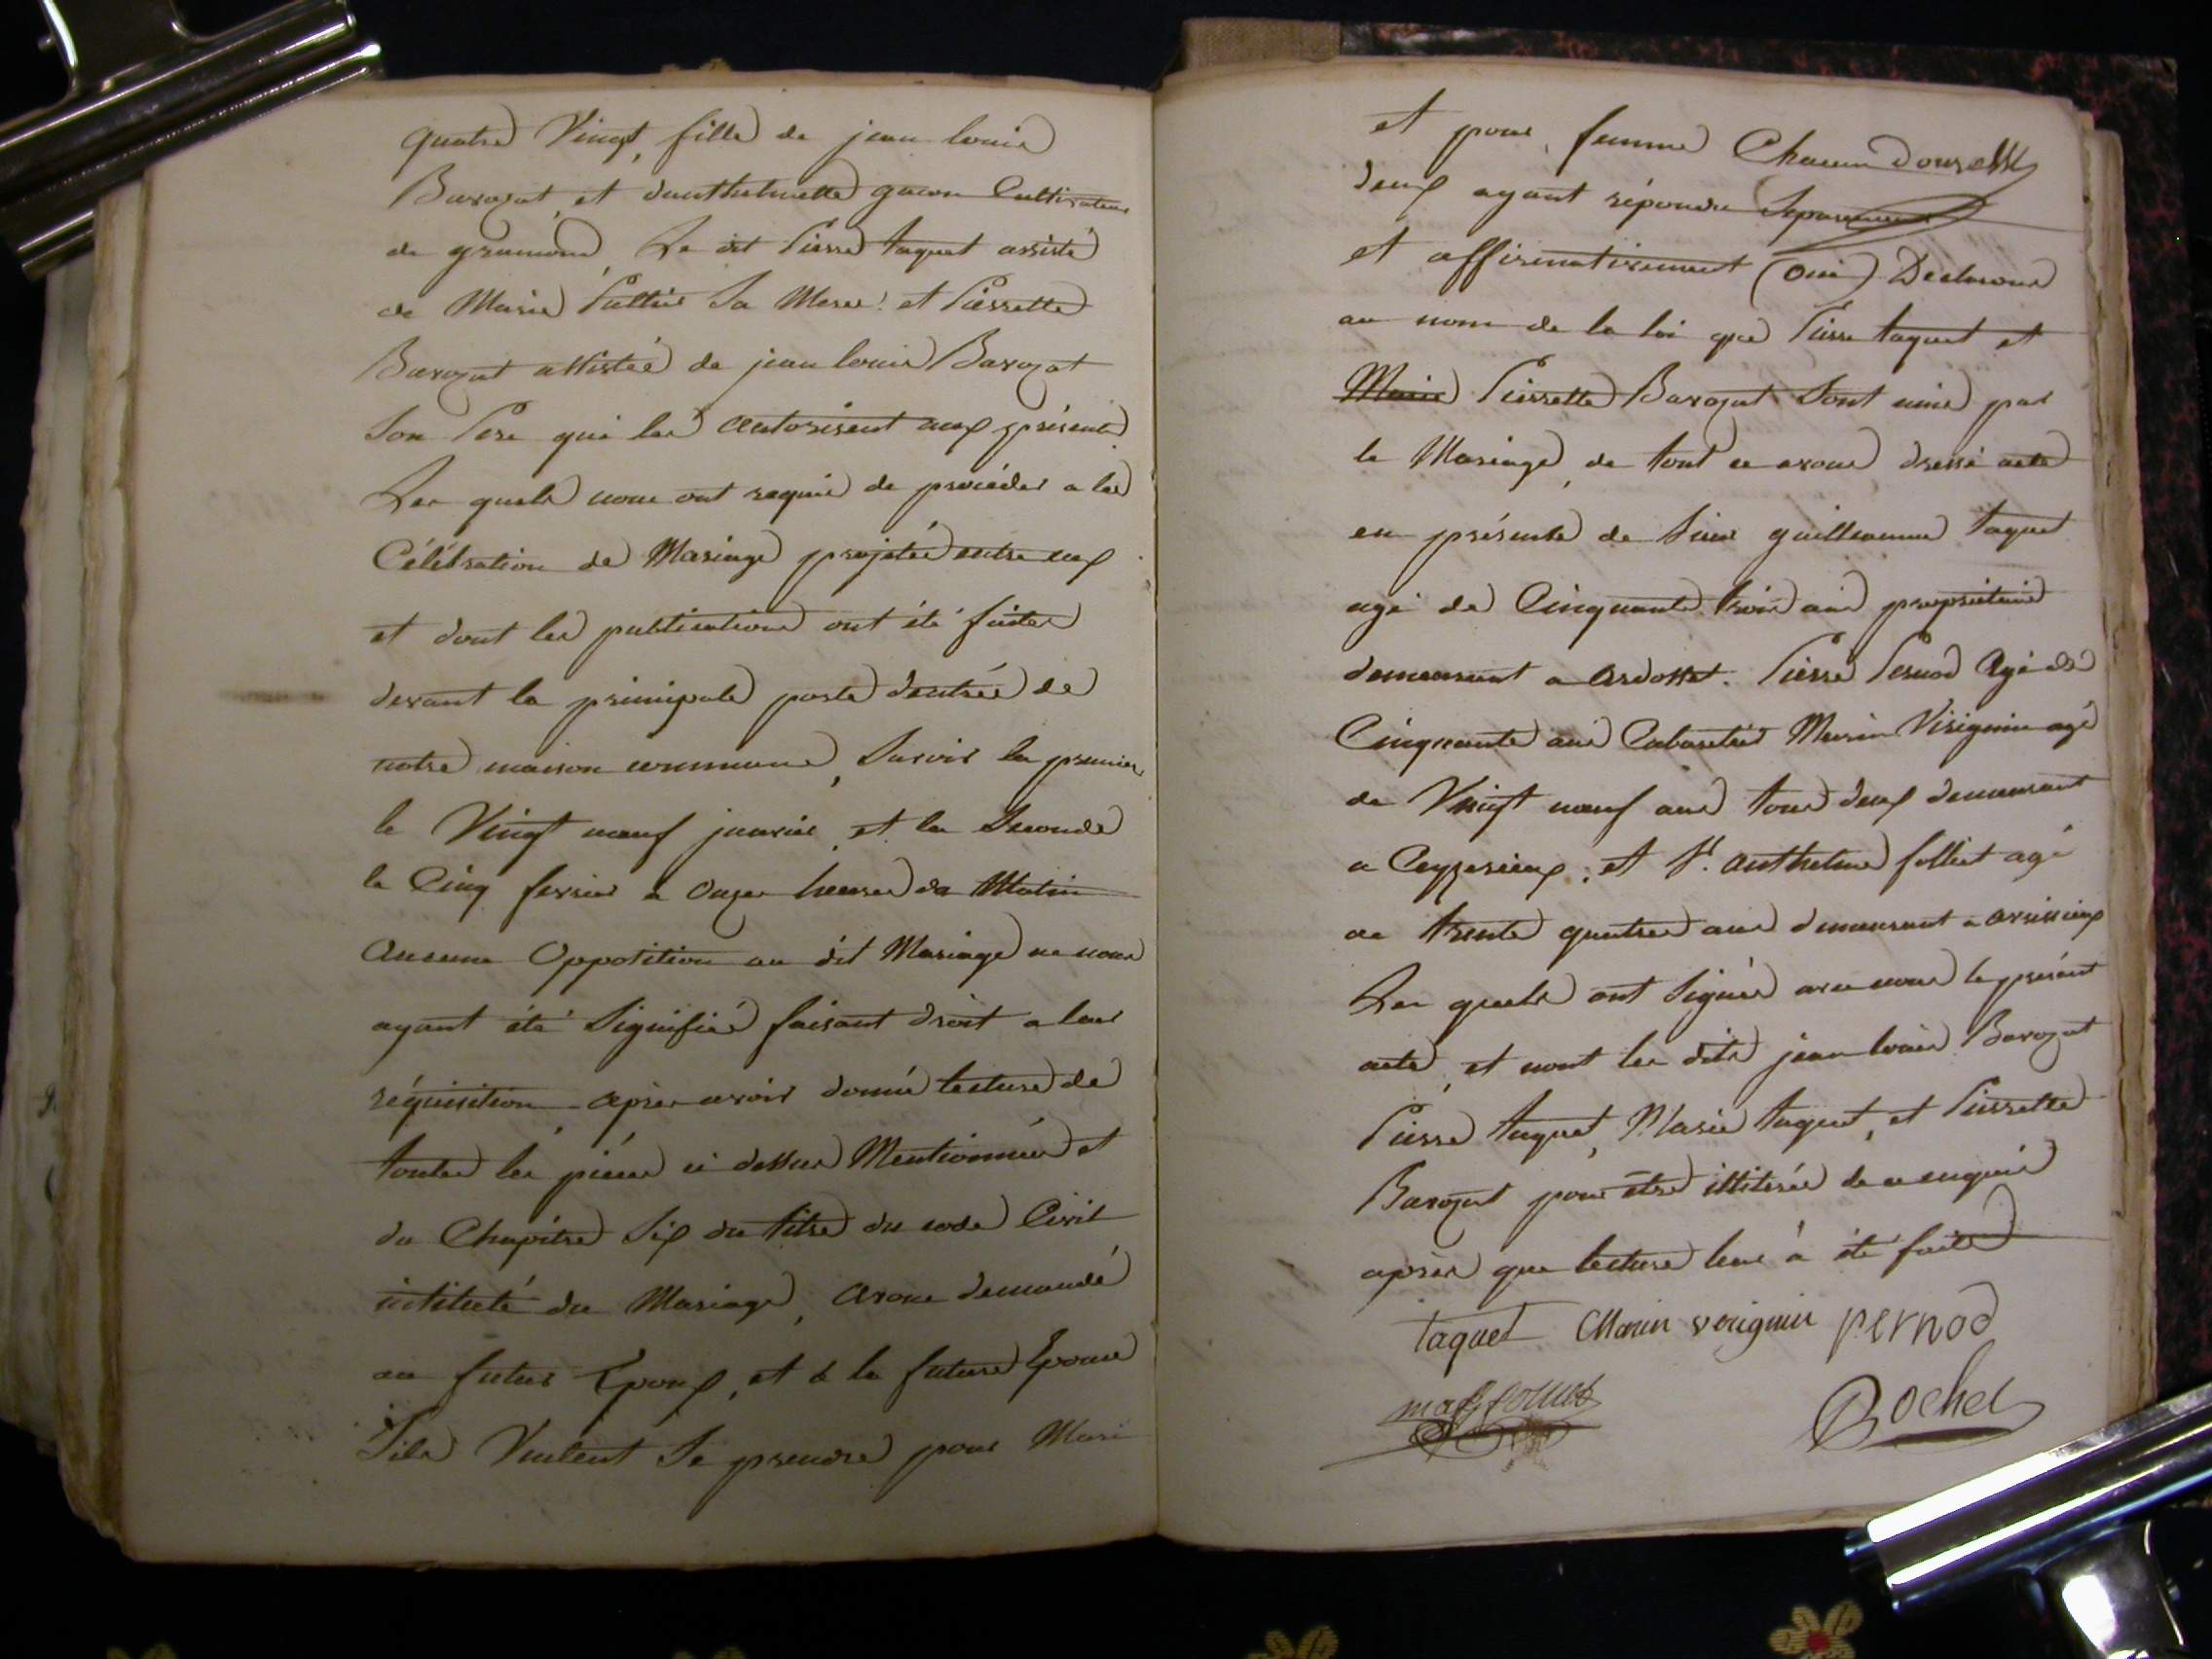 quatre Vingt, fille de jean louis
Barozat et danthelmette gacon Cultivateurs
de gramond, Le dit Pierre taquet assisté
de Marie Pultier Sa Mere: et Pierrette
Barozat assistée de jean louis Barozat
Son Pere qui les autorisent aux présente
Les quels nous ont requis de procéder a la
Célébration de Mariage projetée entre eux
et dont les publications ont été faites
devant la principale porte dentrée de
notre maison commune, Savoir la premier
le Vingt neuf janvier, et la Seconde
le Cinq fevrier a onze heures da Matin
Aucune Opposition au dit Mariage ne nous
ayant été Signifiée faisant droit a leur
réquisition, après avoir donné lecture de
toutes les pieces ci dessus Mentionnées et
du Chapitre Six du titre du code Civil
intitulé du Mariage, avons demandé
au futur Epoux, et à la future Epouse
Sils Veulent Se prendre pour Mari
et pour femme Chacun
deux ayant répondu Séparement
et affirmativement (oui) Declarons
au nom de la loi que Pierre taquet et
Marie Pierrette Barozat Sont unis par
le Mariage, de tout ce avons dressé acte
en présente de Sieur guilleaume taquet
agé de Cinquante trois ans propriétaire
demeurant a ardosset. Pierre Pernod Agé de
Cinquante ans Cabaretier Marin Virignin agé
de Vingt neuf ans tous deux demeurant
a Ceyzerieux; et Sr. anthelme folliet agé
de trente quatre ans demeurant a avrissieux
Les quels ont Signés avec nous le présent
acte, et nont les dits jean louis Barozat
Pierre taquet, Marie taquet, et Pierrette
Barozat pour être illitérés de ce enquis
après que lecture leur à été faite
taquet Marin verignin pernod
Rochel